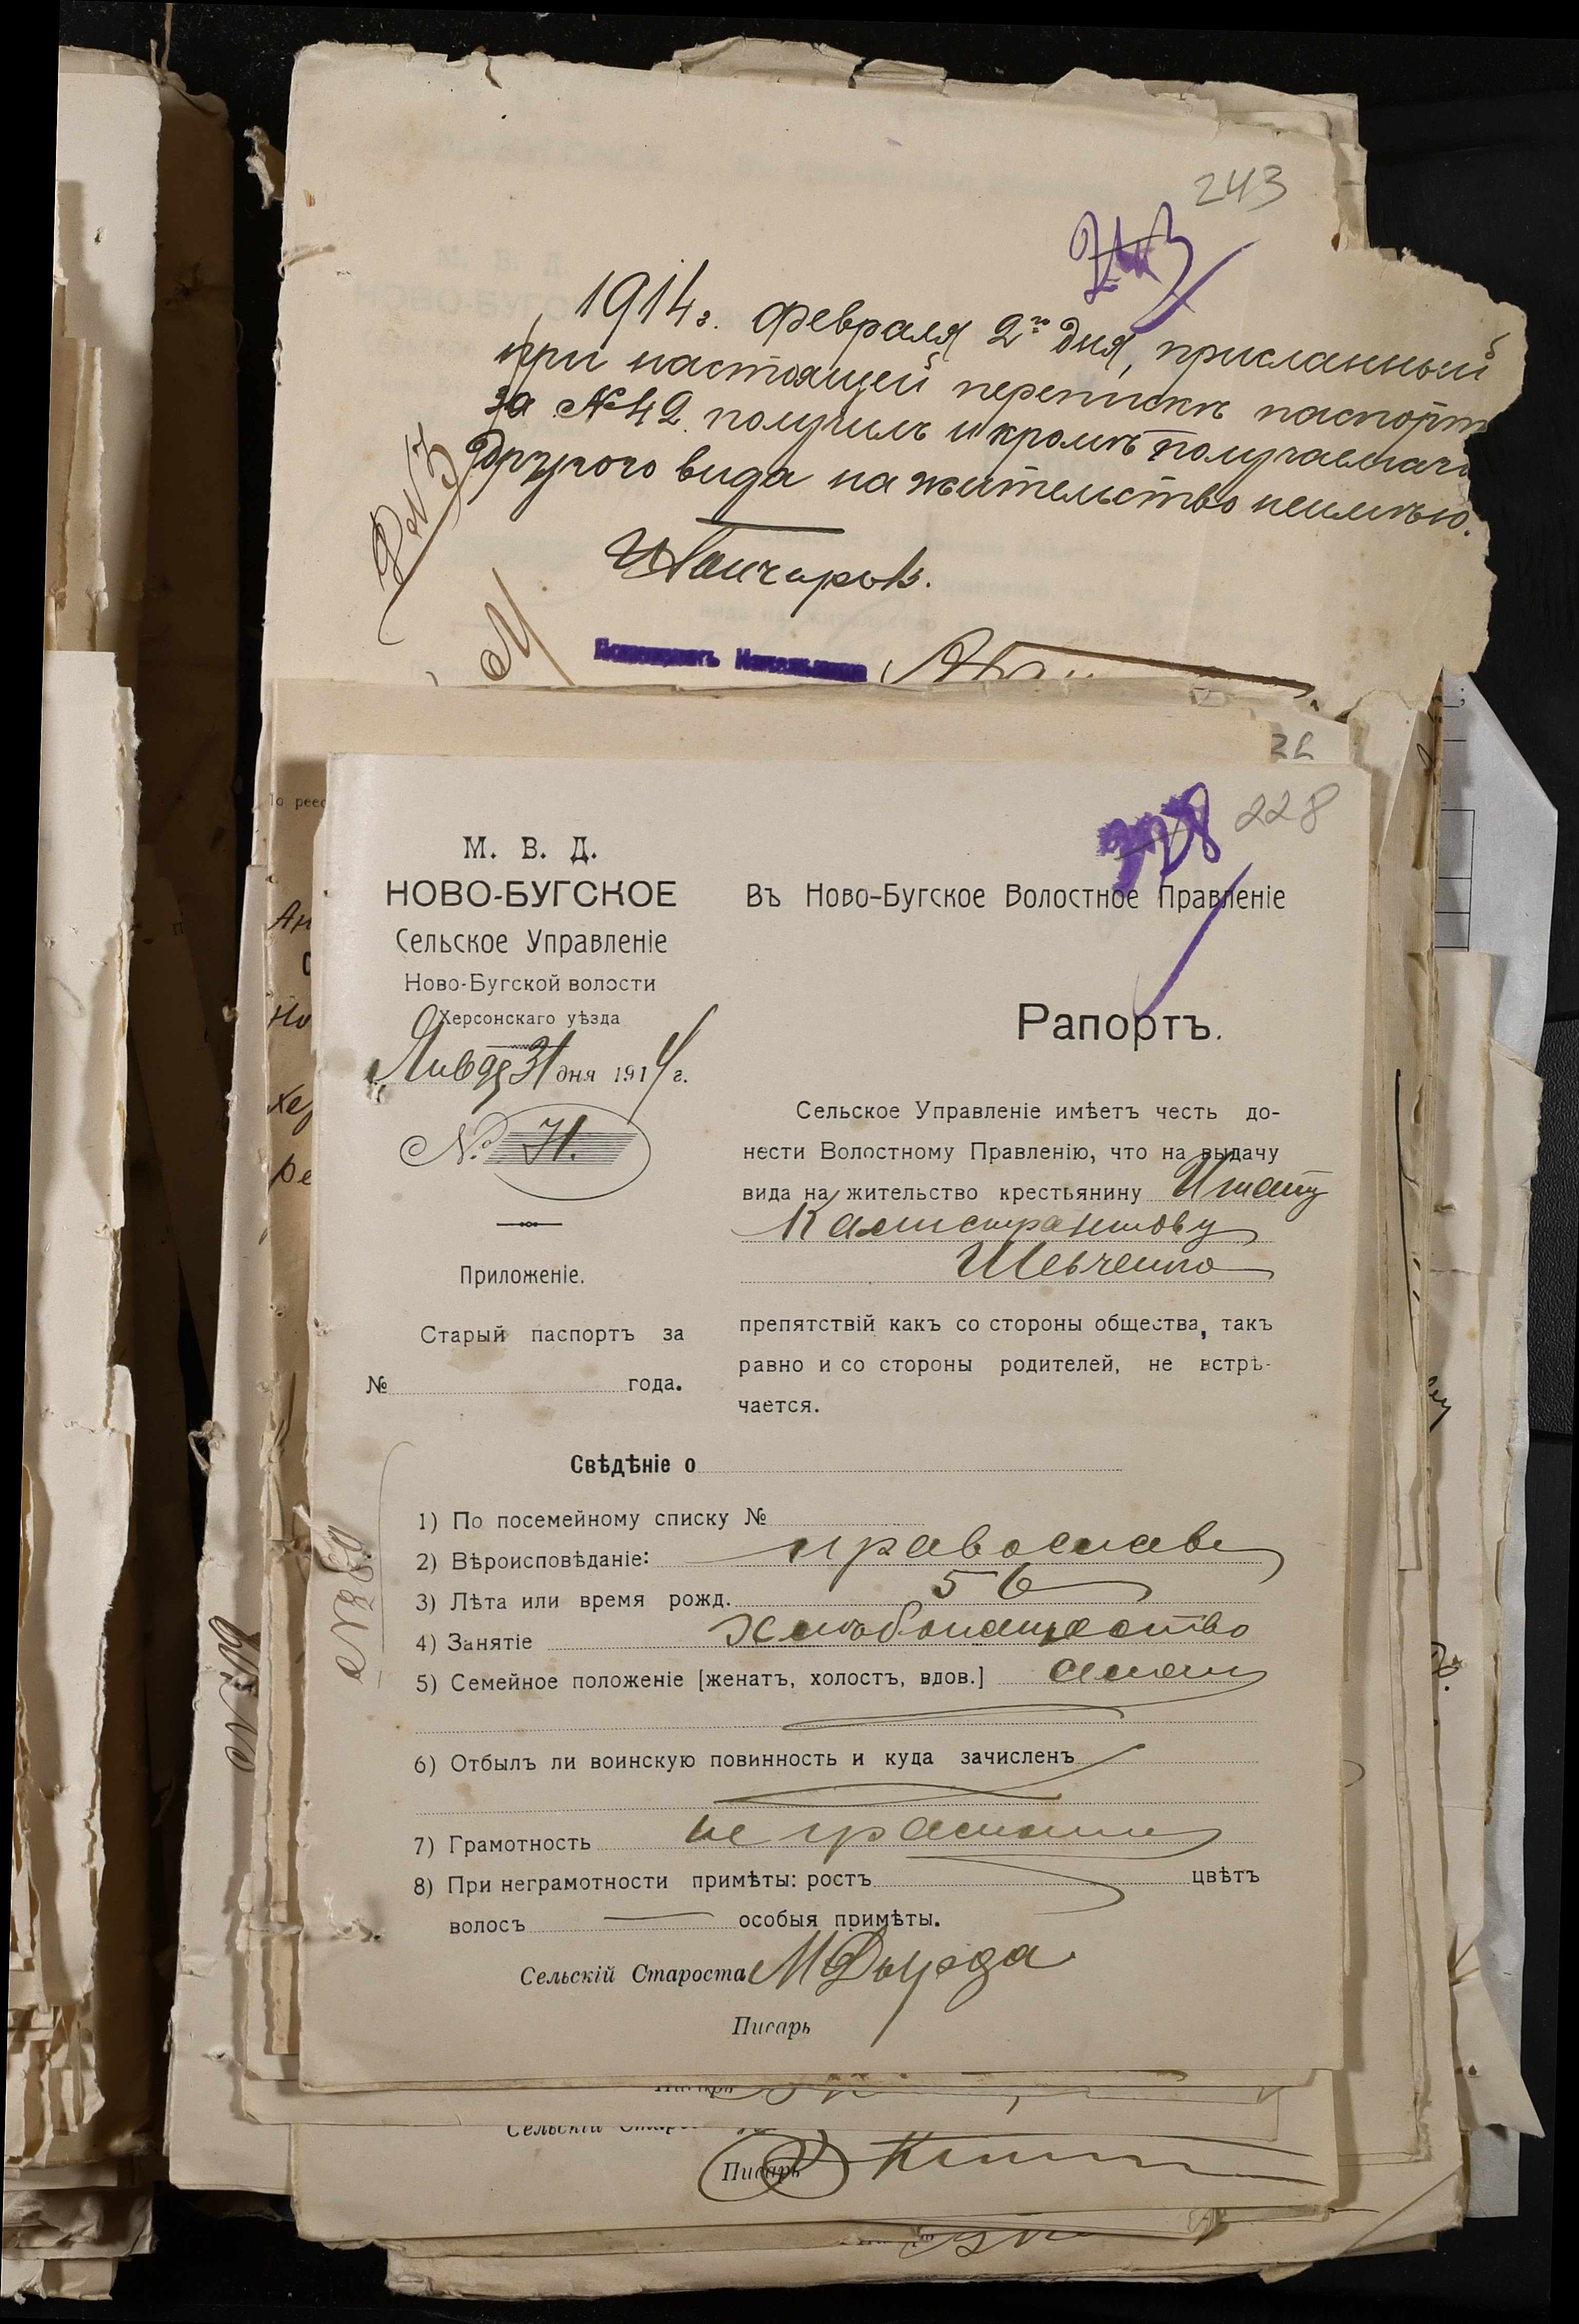 243
243
1914 г. Февраля 2го дня, присланный
при настоящей перепискѣ паспортъ
за № 42 получилъ и кромѣ получаемаго
другого вида на жительство неимѣю.
Помощникъ Начальника
По реес
228
328
М. В. Д.
НОВО-БУГСКОЕ
Сельское Управленіе
Ново-Бугской волости
Херсонскаго уѣзда
Января 31 дня 1914 г.
№ 71.
Приложеніе.
Старый паспортъ за
№ года.
Въ Ново-Бугское Волостное Правленіе
Рапортъ.
Сельское Управленіе имѣетъ честь до-
нести Волостному Правленію, что на выдачу
вида на жительство крестьянину Игнату
Калистратову
Шевченко
препятствій какъ со стороны общества, такъ
равно и со стороны родителей, не встрѣ-
чается.
Свѣдѣніе о
1) По посемейному списку №
2) Вѣроисповѣданіе: православн
3) Лѣта или время рожд. 56
4) Занятіе хлѣбопашество
5) Семейное положеніе [женатъ, холостъ, вдов.]
6) Отбылъ ли воинскую повинность и куда зачисленъ
7) Грамотность не грамотн
8) При неграмотности примѣты: ростъ цвѣтъ
волосъ особыя примѣты.
Сельскій Староста
Писарь
Писарь
Сельскій Старос
Писарь